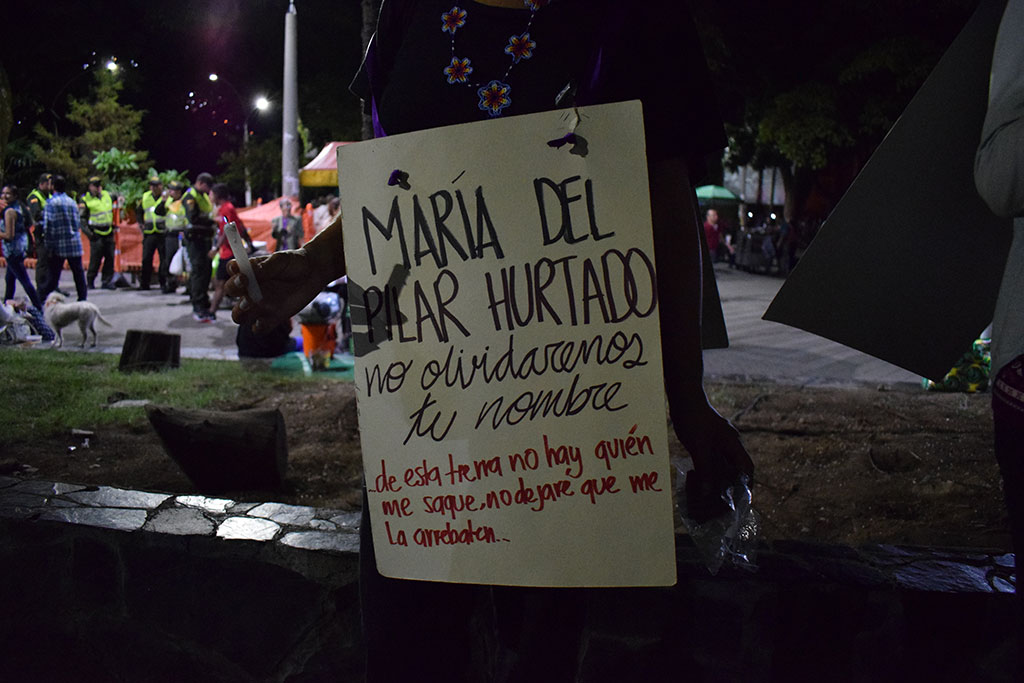 MARÍA DEL
PILAR HURTADO
no olvidaremos
tu nombre
...de esta tierra no hay quién
me saque, no dejaré que me
La arrebaten...